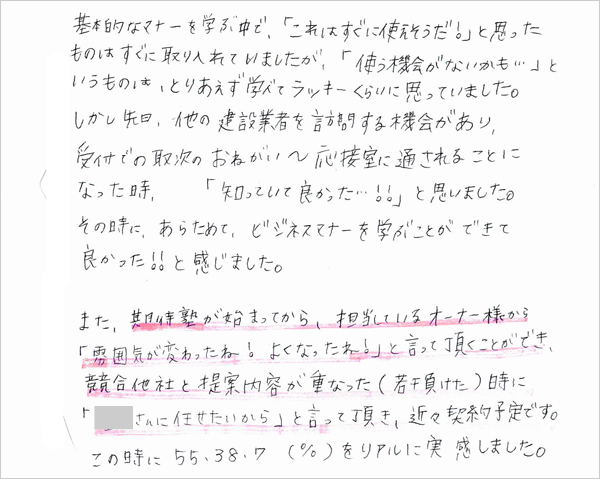 基本的なマナーを学ぶ中で、「これはすぐに使えそうだ!」と思った
ものはすぐに取り入れていましたが、「使う機会がないかも…」と
いうものは、とりあえず学べてラッキーくらいに思っていました。
しかし先日、他の建設業者を訪問する機会があり、
受付での取次のおねがい〜応接室に通されることに
なった時、「知っていて良かった…!!」と思いました。
その時に、あらためて、ビジネスマナーを学ぶことができて
良かった!!と感じました。
また、期待塾が始まってから、担当しているオーナー様から
「雰囲気が変わったね!よくなったね!」と言って頂くことができ、
競合他社と提案内容が重なった(若干負けた)時に
「さんに任せたいから」と言って頂き、近々契約予定です。
この時に55.38.7(%)をリアルに実感しました。